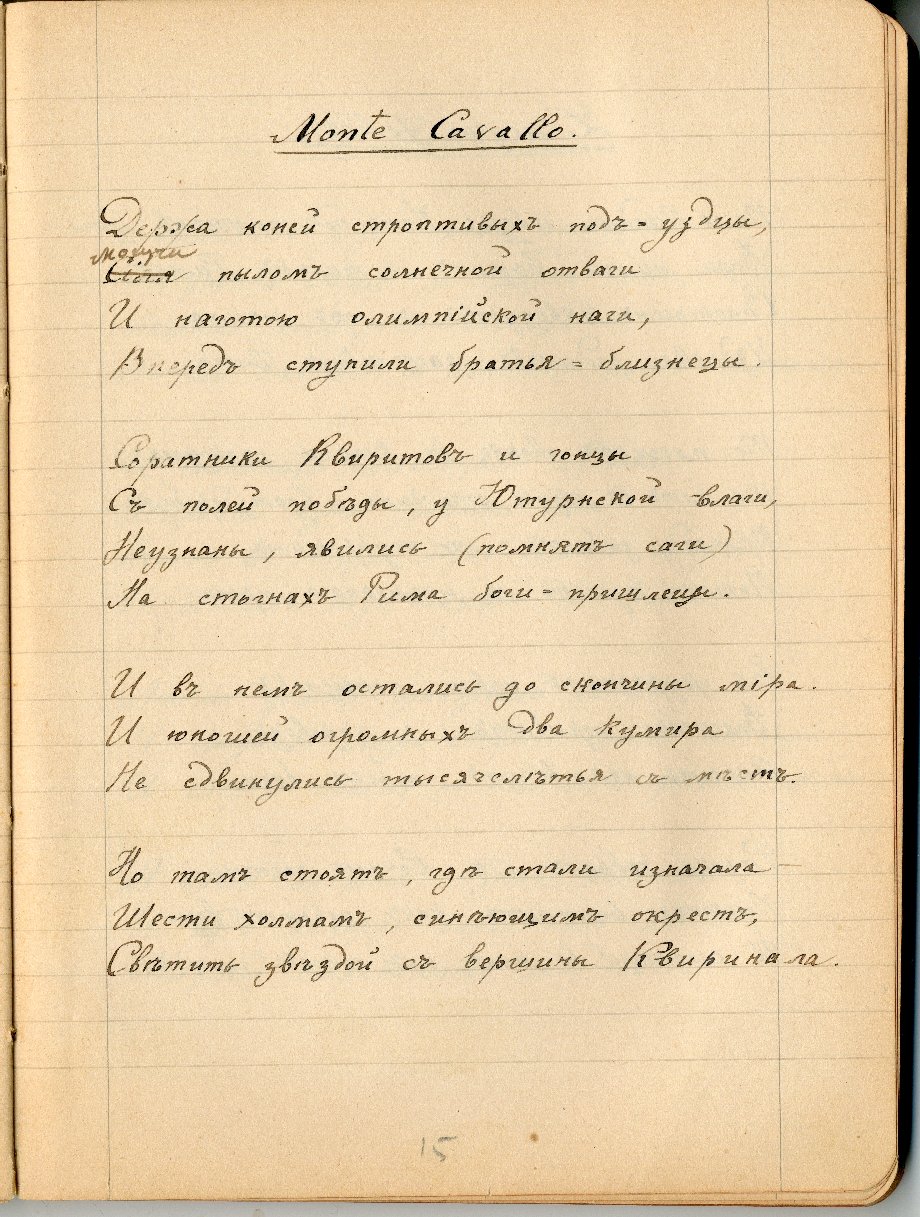 Monte Cavallo.
Держа коней строптивыхъ подъ=уздцы,
могучи
пыломъ солнечной отваги
И наготою олимпійской наги,
Впередъ ступили братья=близнецы.
Соратники Квиритовъ и гонцы
Съ полей побѣды, у Ютурнской влаги,
Неузнаны, явились (помнятъ саги)
На стогнахъ Рима боги=пришлецы.
И въ немъ остались до скончины міра.
И юношей огромныхъ два кумира
Не сдвинулись тысячелѣтья съ мѣстъ.
Но тамъ стоятъ, гдѣ стали изначала —
Шести холмамъ, синѣющимъ окрестъ,
Свѣтить звѣздой съ вершины Квиринала.
15